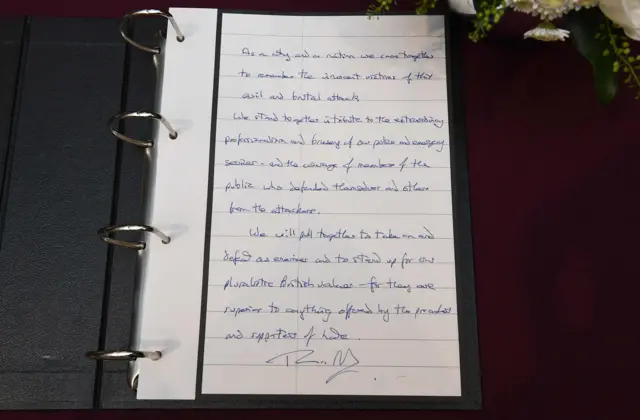 As a city and as a nation we come together
to remember the innocent victims of this
evil and brutal attack.
We stand together in tribute to the extraordinary
professionalism and bravery of our police and emergency
services - and the courage of members of the
public who defended themselves and others
from the attackers.
We will pull together to take on and
defeat our enemies and to stand up for our
pluralistic British values - for they are
superior to anything offered by the preachers
and supporters of hate.